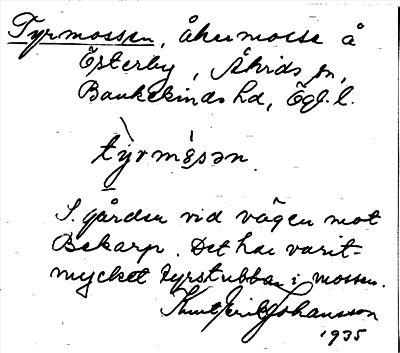 Tyrmossen, åkermosse å
Österby, Åtvids sn,
Bankekinds hd, Ögl. l.
tỳrmɵ̀sən.
S. gården vid vägen mot
Bekarp. Det har varit
mycket tyrstubbar i mossen.
Knut Erik Johansson
1935